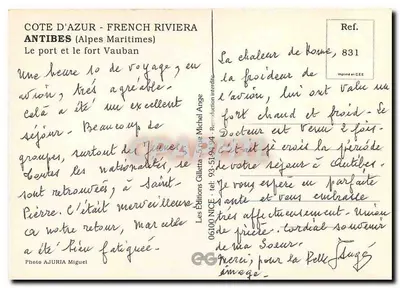 COTE D'AZUR - FRENCH RIVIERA
ANTIBES (Alpes Maritimes)
Le port et le fort Vauban
Une heure 10 de voyage, en
avion, très agréable.
Celà a été un excellent
séjour. Beaucoup de
groupes, surtout de Jeunes
toutes les nationalités, se
sont retrouvées, à Saint-
Pierre. C'était merveilleux
à notre retour, Marcelle
a été bien fatiguée.
Photo AJURIA Miguel
Les Editions Gilletta - 5, rue Michel Ange
06100 NICE - tél. 93-51
Ref.
831
La chaleur de Rome,
la froideur de
l'avion, lui ont valu un
fort chaud et froid. Le
Docteur est venu 2 fois.
et si je crois la période
de votre séjour à Antibes.
Je vous espère en parfaite
santé et vous embrasse
très affectueusement. Union
de prière. Cordial souvenir
de ma Soeur.
Merci, pour la belle
image.